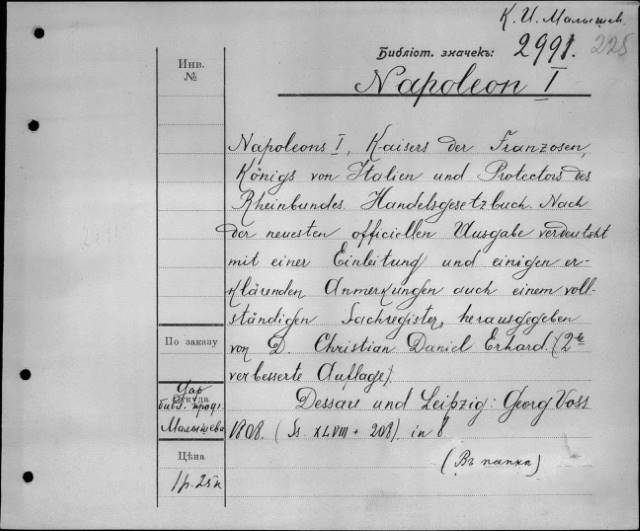 К. И. Малышев.
Библіот. значекъ: 2991. 225
Инв.
№
Napoleon I
Napoleons I, Kaisers der Franzosen,
Königs von Italien und Protectors des
Rheinbundes Handelsgesetzbuch. Nach
der neuesten officiellen Ausgabe verdeutsht
mit einer Einleitung und einigen er-
klärenden Anmerkungen auch einem voll-
ständigen Sachregister, herausgegeben
По заказу
von D. Christian Daniel Erhard (2te
verbesserte Auflage).
Откуда
Дар
библ. проф.
Малышева
Dessau und Leipzig: Georg Voss
1808. (Ss. XLVIII + 208). in 8
Цѣна
1 р. 25 к
(Въ папкѣ)